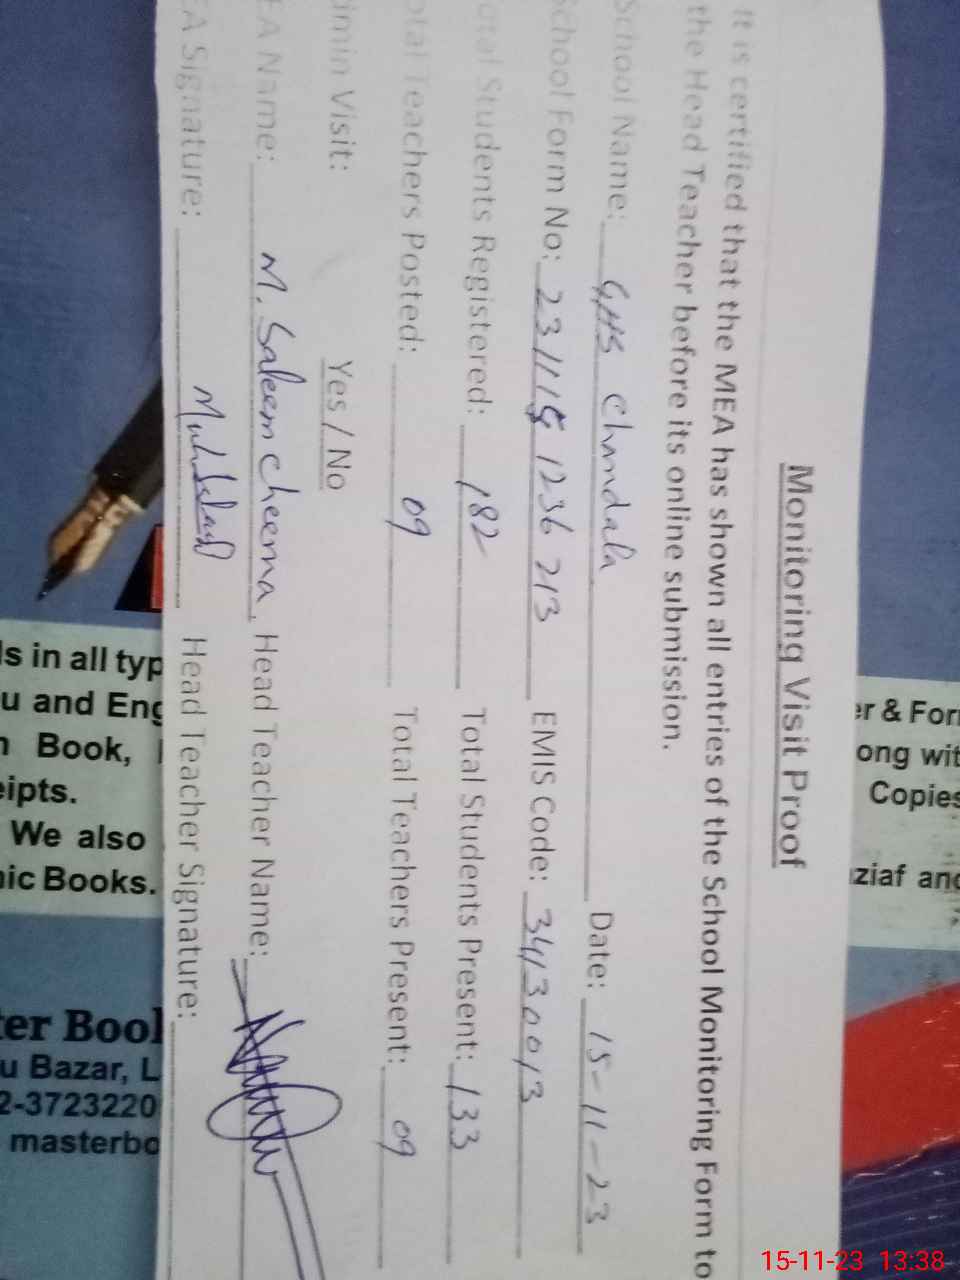 Monitoring Visit Proof
It is certified that the MEA has shown all entries of the School Monitoring Form to
the Head Teacher before its online submission.
School Name: GHS Chandala Date: 15-11-23
School Form No: 231115 1236 213 EMIS Code: 34130013
otal Students Registered: 182 Total Students Present: 133
otal Teachers Posted: 09 Total Teachers Present: 09
dmin Visit: Yes / No
EA Name: M. Saleem Cheema. Head Teacher Name:
EA Signature: Head Teacher Signature:
ls in all typ
u and Eng
Book,
eipts.
We also
nic Books.
ter Bool
u Bazar, L
2-3723220
masterbo
er & For
ong wit
Copies
ziaf and
15-11-23 13:38